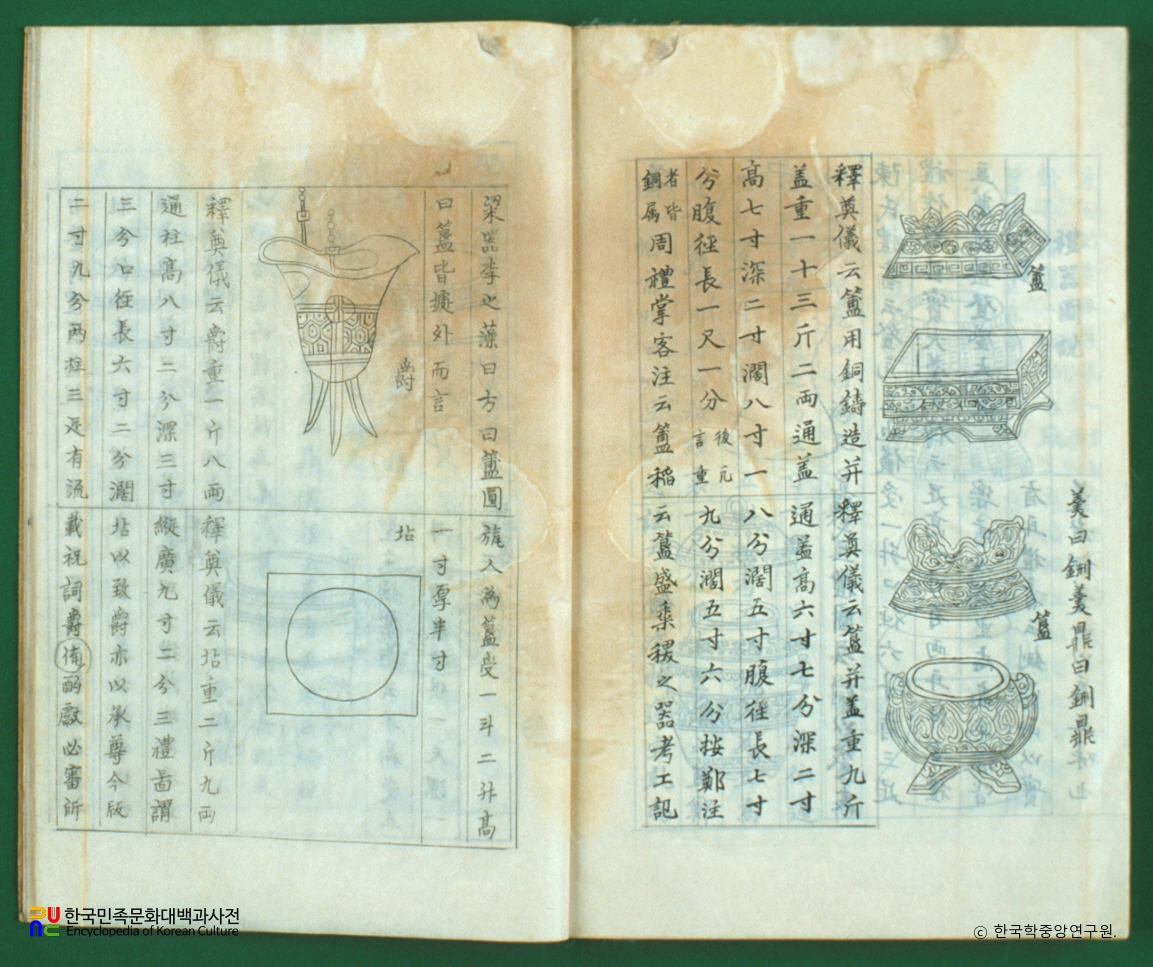 羹曰鉶羹鼎曰鉶鼎
簠
釋奠儀云簠用銅鑄造并
盖重一十三斤二两通盖
高七寸深二寸濶八寸一
分腹徑長一尺一分後凡言重
者皆銅属周禮掌客注云簠稻
簋
釋奠儀云簋并盖重九斤
通盖高六寸七分深二寸
八分濶五寸腹徑長七寸
九分濶五寸六分按鄭注
云簋盛黍稷之器考工記
粱器李之藻曰方曰簠圓
曰簋皆據外而言
爵
釋奠儀云爵重一斤八两
通柱高八寸二分深三寸
三分口徑長六寸二分濶
二寸九分两柱三足有流
旊人為簋受一斗二升高
一寸厚半寸
坫
釋奠儀云坫重二斤九两
縱廣九寸二分三禮啚謂
坫以致爵亦以承尊今版
載祝詞爵俻酌獻必審所
한국민족문화대백과사전
Encyclopedia of Korean Culture
ⓒ 한국학중앙연구원.